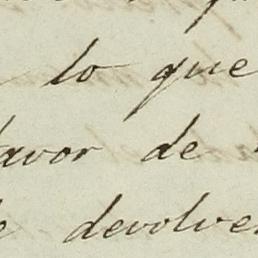 lo que
favor de
devolver